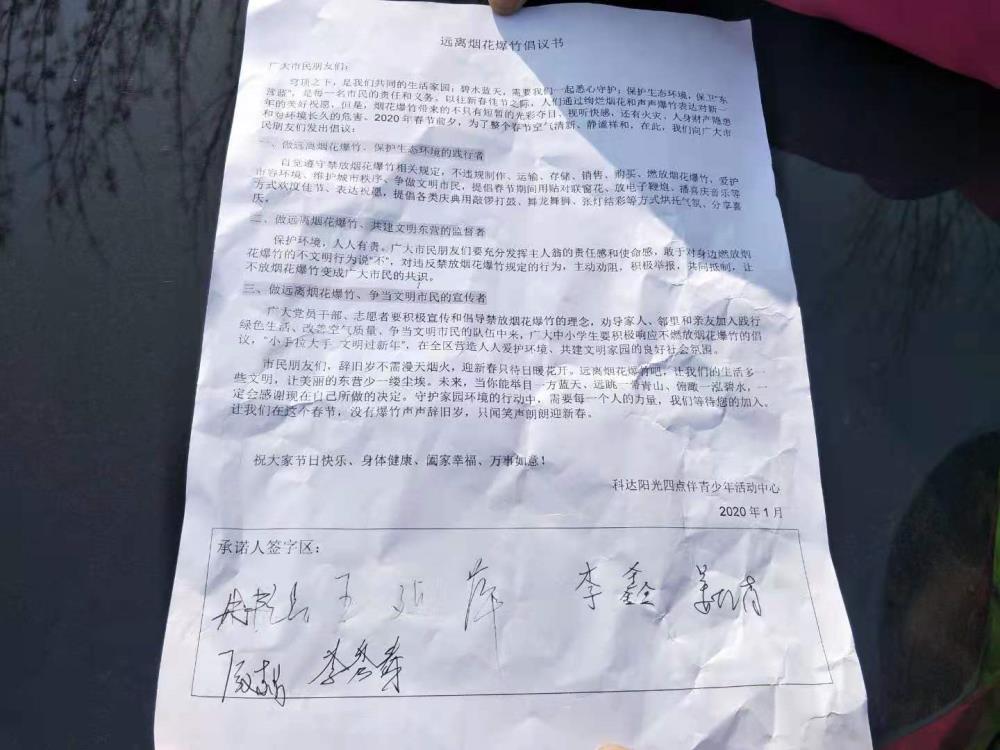 远离烟花爆竹倡议书
广大市民朋友们：
穹顶之下，是我们共同的生活家园；碧水蓝天，需要我们一起悉心守护；保护生态环境，保卫"东
营蓝"，是每一名市民的责任和义务。以往新春佳节之际，人们通过绚烂烟花和声声爆竹表达对新一
年的美好祝愿，但是，烟花爆竹带来的不只有短暂的光彩夺目、视听快感，还有火灾，人身财产隐患
和对环境长久的危害。2020年春节前夕，为了整个春节空气清新、静谧祥和，在此，我们向广大市
民朋友们发出倡议：
一、做远离烟花爆竹、保护生态环境的践行者
自觉遵守禁放烟花爆竹相关规定，不违规制作、运输、存储、销售、购买、燃放烟花爆竹，爱护
市容环境、维护城市秩序、争做文明市民，提倡春节期间用贴对联窗花、放电子鞭炮、播喜庆音乐等
方式欢度佳节、表达祝愿，提倡各类庆典用敲锣打鼓、舞龙舞狮、张灯结彩等方式烘托气氛、分享喜
庆。
二、做远离烟花爆竹、共建文明东营的监督者
保护环境，人人有责。广大市民朋友们要充分发挥主人翁的责任感和使命感，敢于对身边燃放烟
花爆竹的不文明行为说"不"，对违反禁放烟花爆竹规定的行为，主动劝阻，积极举报，共同抵制，让
不放烟花爆竹变成广大市民的共识。
三、做远离烟花爆竹、争当文明市民的宣传者
广大党员干部、志愿者要积极宣传和倡导禁放烟花爆竹的理念，劝导家人、邻里和亲友加入践行
绿色生活、改善空气质量、争当文明市民的队伍中来，广大中小学生要积极响应不燃放烟花爆竹的倡
议，"小手拉大手 文明过新年"，在全区营造人人爱护环境、共建文明家园的良好社会氛围。
市民朋友们，辞旧岁不需漫天烟火，迎新春只待日暖花开。远离烟花爆竹吧，让我们的生活多一
些文明，让美丽的东营少一缕尘埃。未来，当你能举目一方蓝天、远眺一带青山、俯瞰一泓碧水，一
定会感谢现在自己所做的决定。守护家园环境的行动中，需要每一个人的力量，我们等待您的加入。
让我们在这个春节，没有爆竹声声辞旧岁，只闻笑声朗朗迎新春。
祝大家节日快乐、身体健康、阖家幸福、万事如意！
科达阳光四点伴青少年活动中心
2020年1月
承诺人签字区：
王延萍 李鑫
李秀